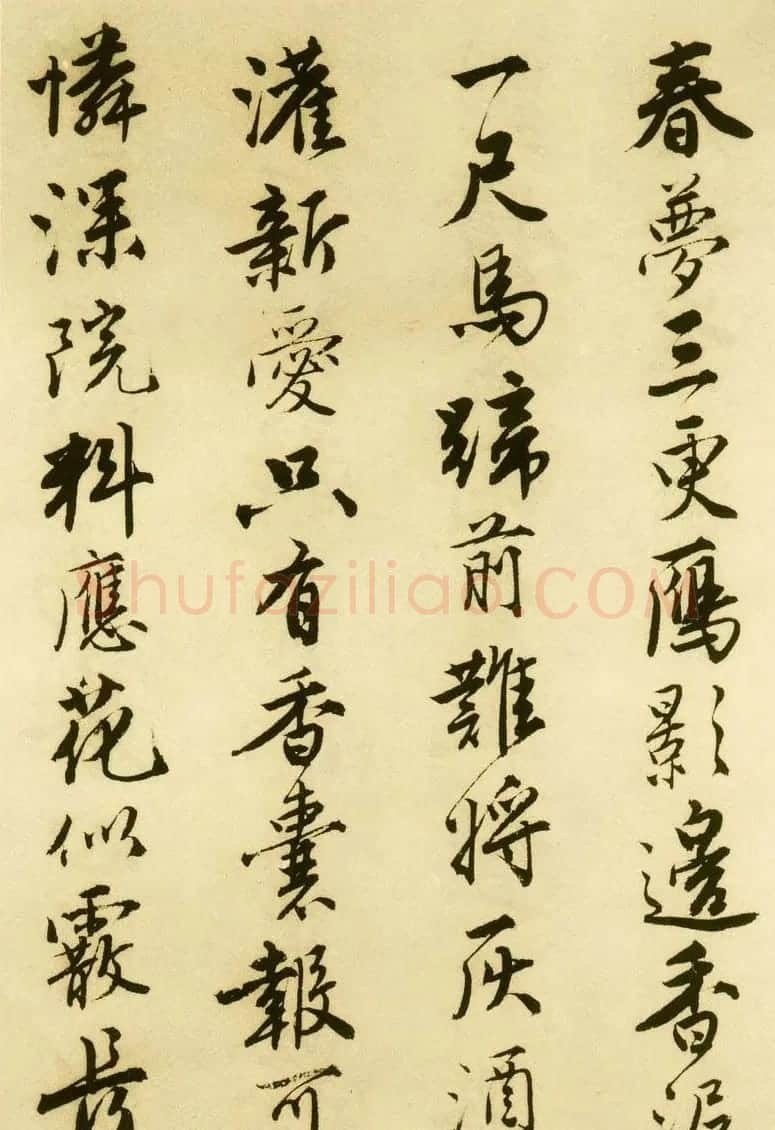 春夢三更鴈影邊香泥
一尺馬蹄前難將灰酒
灌新愛只有香囊報可
憐深院料應花似霰長
Shufaziliao.COM